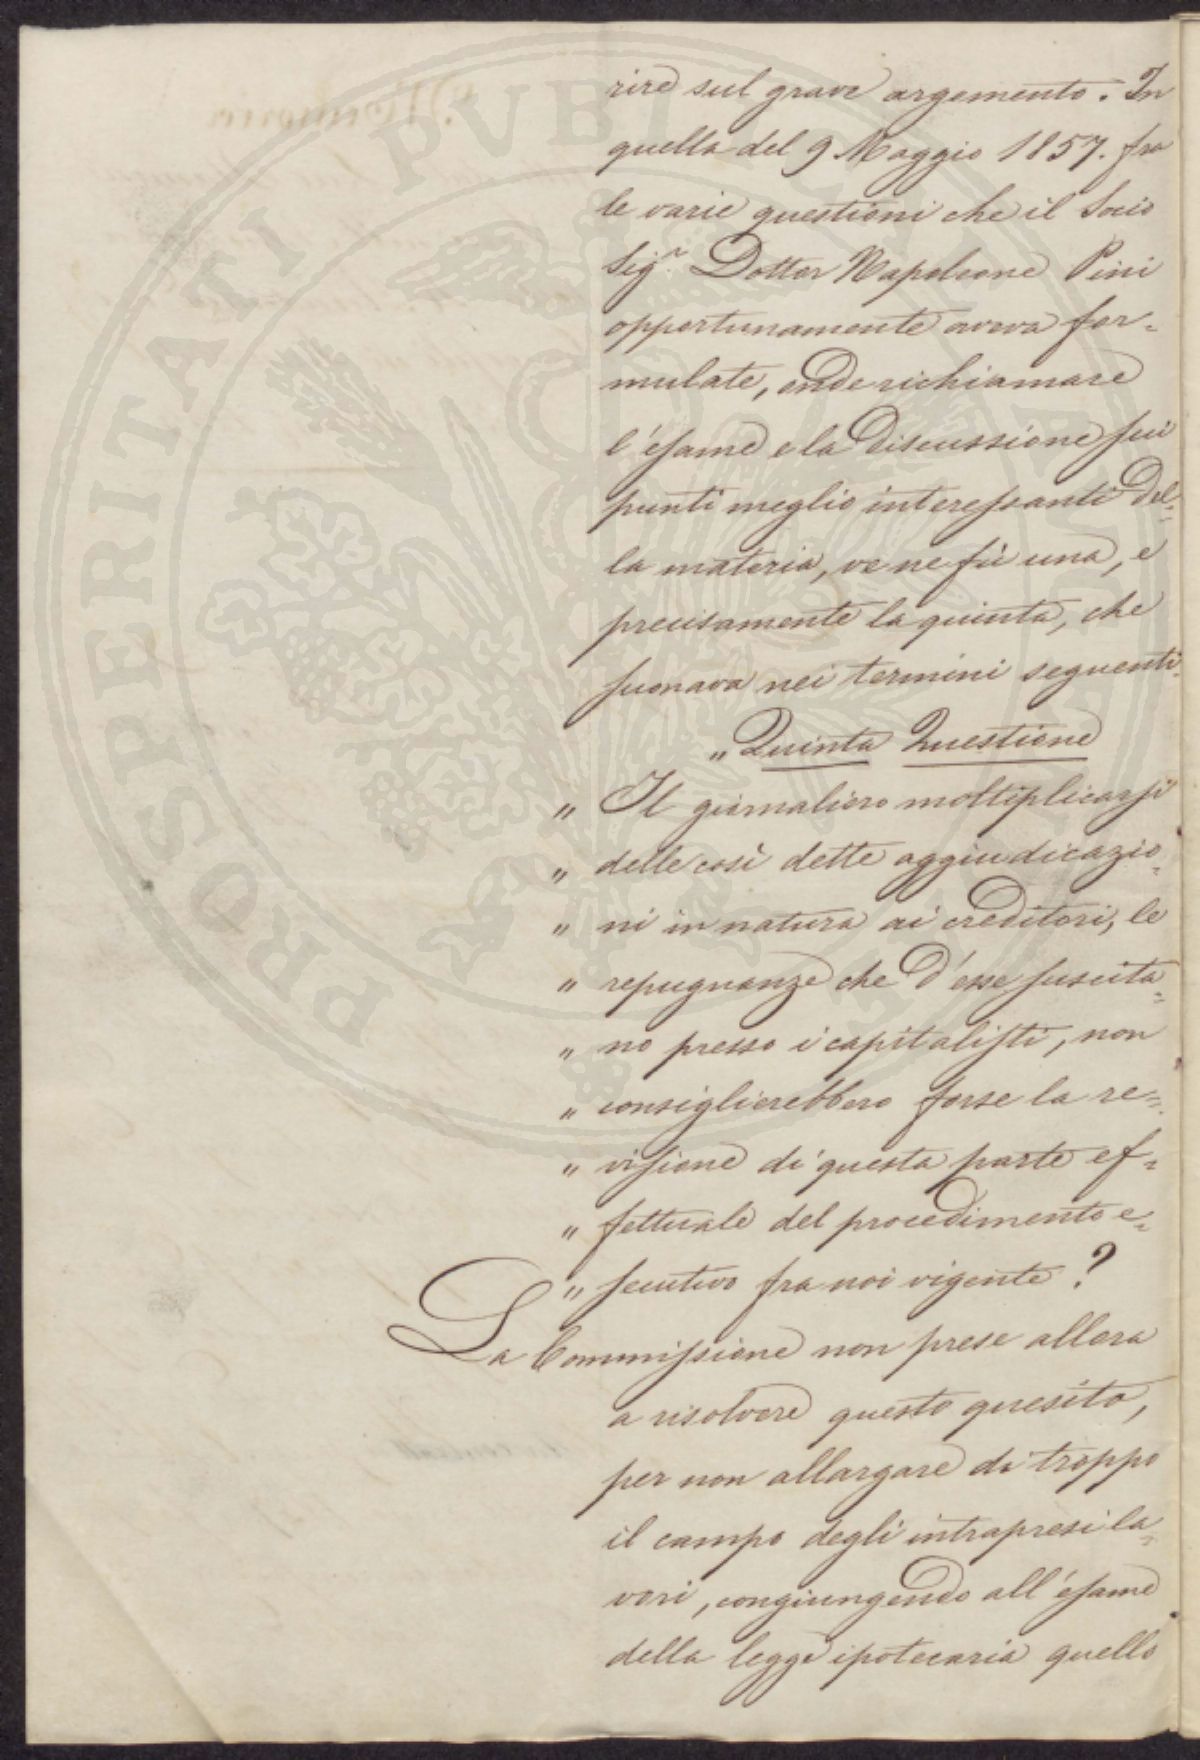 rire sul grave argomento. In
quella del 9 Maggio 1857. fra
le varie questioni che il Socio
Sigr. Dottor Napoleone Pini
opportunamente aveva for=
mulate, onde richiamare
l'esame e la discussione sui
punti meglio interessanti del=
la materia, ve ne fù una, e
precisamente la quinta, che
suonava nei termini seguenti.
" Quinta Questione
" Il giornaliero moltiplicarsi
" delle così dette aggiudicazio=
" ni in natura ai creditori, le
" repugnanze che d'esse suscita=
" no presso i capitalisti, non
" consiglierebbero forse la re=
" visione di questa parte ef=
" fettuale del procedimento e=
" secutivo fra noi vigente?
La Commissione non prese allora
a risolvere questo quesito,
per non allargare di troppo
il campo degli intrapresi la=
vori, congiungendo all'esame
della legge ipotecaria quello
PROSPERITATI PVBLICAE